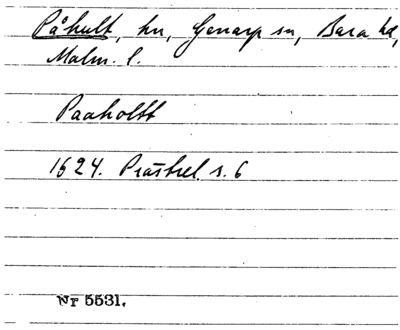 Påhult, hn, Genarp sn, Bara hd,
Malm. l.
Paaholtt
1624. Prästrel. s. 6
Nr 5531.